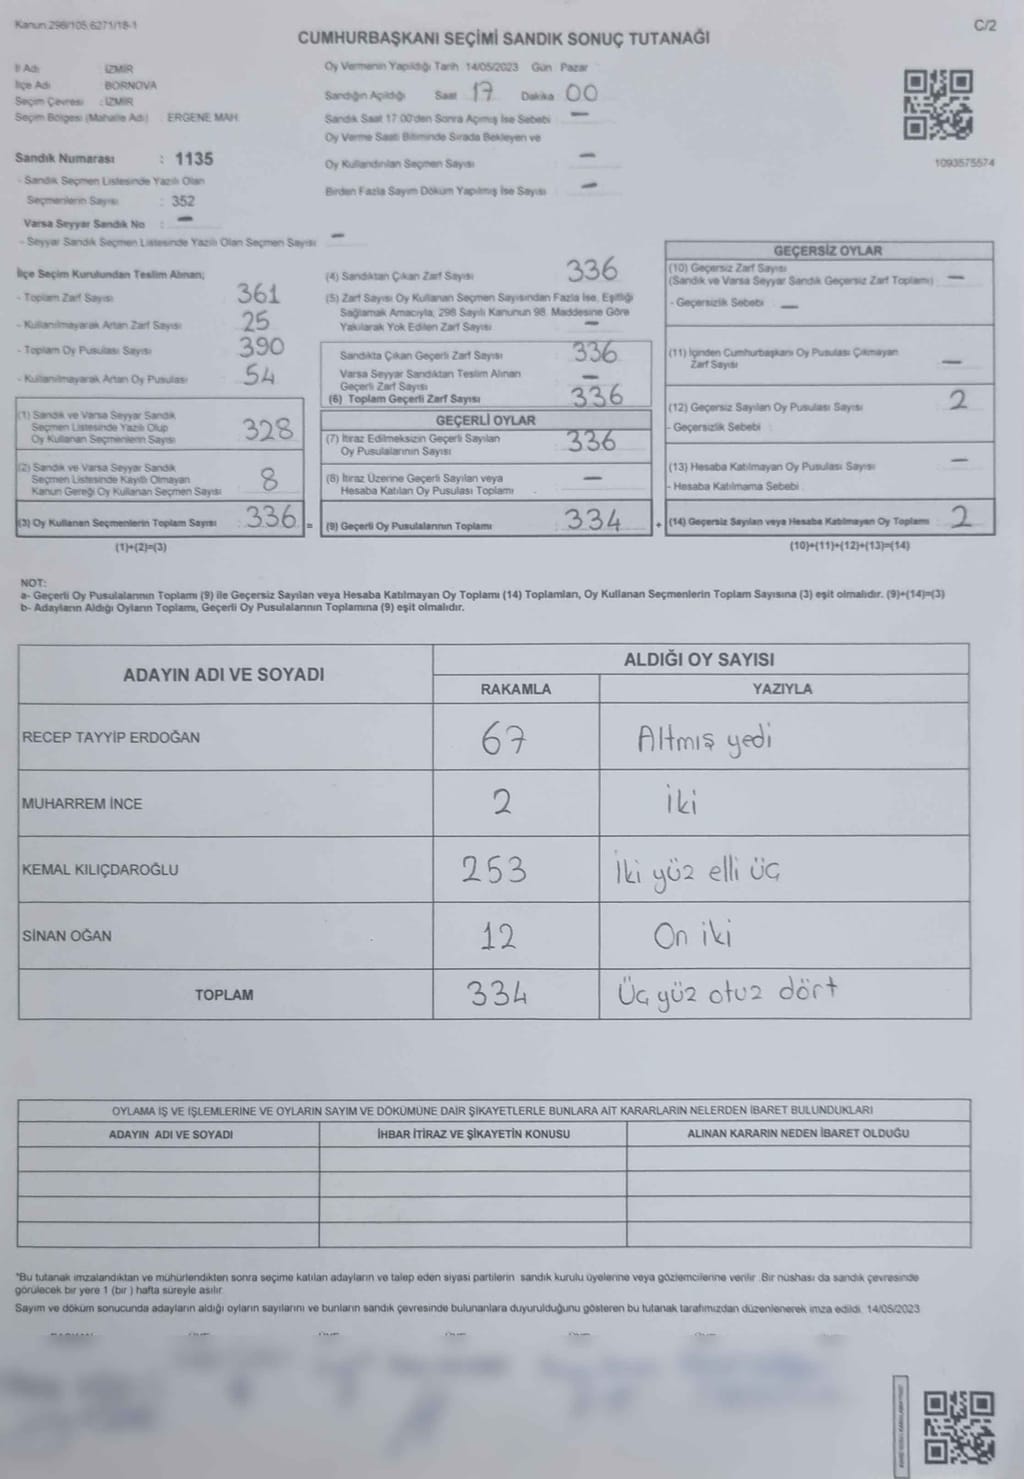 Kanun:298/105,6271/18-1
C/2
CUMHURBAŞKANI SEÇİMİ SANDIK SONUÇ TUTANAĞI
İl Adı : İZMİR
İlçe Adı : BORNOVA
Seçim Çevresi : İZMİR
Seçim Bölgesi (Mahalle Adı) : ERGENE MAH.
Sandık Numarası : 1135
- Sandık Seçmen Listesinde Yazılı Olan
Seçmenlerin Sayısı : 352
Varsa Seyyar Sandık No : —
- Seyyar Sandık Seçmen Listesinde Yazılı Olan Seçmen Sayısı —
Oy Vermenin Yapıldığı Tarih 14/05/2023 Gün Pazar
Sandığın Açıldığı Saat 17 Dakika 00
Sandık Saat 17.00'den Sonra Açımış İse Sebebi —
Oy Verme Saati Bitiminde Sırada Bekleyen ve
Oy Kullandırılan Seçmen Sayısı —
Birden Fazla Sayım Döküm Yapılmış İse Sayısı —
1093575574
İlçe Seçim Kurulundan Teslim Alınan;
- Toplam Zarf Sayısı 361
- Kullanılmayarak Artan Zarf Sayısı 25
- Toplam Oy Pusulası Sayısı 390
- Kullanılmayarak Artan Oy Pusulası 54
(1) Sandık ve Varsa Seyyar Sandık
Seçmen Listesinde Yazılı Olup
Oy Kullanan Seçmenlerin Sayısı 328
(2) Sandık ve Varsa Seyyar Sandık
Seçmen Listesinde Kayıtlı Olmayan
Kanun Gereği Oy Kullanan Seçmen Sayısı 8
(3) Oy Kullanan Seçmenlerin Toplam Sayısı : 336 =
(1)+(2)=(3)
(4) Sandıktan Çıkan Zarf Sayısı 336
(5) Zarf Sayısı Oy Kullanan Seçmen Sayısından Fazla İse, Eşitliği
Sağlamak Amacıyla, 298 Sayılı Kanunun 98. Maddesine Göre
Yakılarak Yok Edilen Zarf Sayısı —
Sandıkta Çıkan Geçerli Zarf Sayısı 336
Varsa Seyyar Sandıktan Teslim Alınan
Geçerli Zarf Sayısı —
(6) Toplam Geçerli Zarf Sayısı 336
GEÇERLİ OYLAR
(7) İtiraz Edilmeksizin Geçerli Sayılan
Oy Pusulalarının Sayısı 336
(8) İtiraz Üzerine Geçerli Sayılan veya
Hesaba Katılan Oy Pusulası Toplamı —
(9) Geçerli Oy Pusulalarının Toplamı : 334 +
GEÇERSİZ OYLAR
(10) Geçersiz Zarf Sayısı
(Sandık ve Varsa Seyyar Sandık Geçersiz Zarf Toplamı) —
- Geçersizlik Sebebi : —
(11) İçinden Cumhurbaşkanı Oy Pusulası Çıkmayan
Zarf Sayısı —
(12) Geçersiz Sayılan Oy Pusulası Sayısı 2
- Geçersizlik Sebebi :
(13) Hesaba Katılmayan Oy Pusulası Sayısı —
- Hesaba Katılmama Sebebi :
(14) Geçersiz Sayılan veya Hesaba Katılmayan Oy Toplamı : 2
(10)+(11)+(12)+(13)=(14)
NOT:
a- Geçerli Oy Pusulalarının Toplamı (9) ile Geçersiz Sayılan veya Hesaba Katılmayan Oy Toplamı (14) Toplamları, Oy Kullanan Seçmenlerin Toplam Sayısına (3) eşit olmalıdır. (9)+(14)=(3)
b- Adayların Aldığı Oyların Toplamı, Geçerli Oy Pusulalarının Toplamına (9) eşit olmalıdır.
ADAYIN ADI VE SOYADI
ALDIĞI OY SAYISI
RAKAMLA YAZIYLA
RECEP TAYYİP ERDOĞAN 67 Altmış yedi
MUHARREM İNCE 2 İki
KEMAL KILIÇDAROĞLU 253 İki yüz elli üç
SİNAN OĞAN 12 On iki
TOPLAM 334 Üç yüz otuz dört
OYLAMA İŞ VE İŞLEMLERİNE VE OYLARIN SAYIM VE DÖKÜMÜNE DAİR ŞİKAYETLERLE BUNLARA AİT KARARLARIN NELERDEN İBARET BULUNDUKLARI
ADAYIN ADI VE SOYADI İHBAR İTİRAZ VE ŞİKAYETİN KONUSU ALINAN KARARIN NEDEN İBARET OLDUĞU
*Bu tutanak imzalandıktan ve mühürlendikten sonra seçime katılan adayların ve talep eden siyasi partilerin sandık kurulu üyelerine veya gözlemcilerine verilir. Bir nüshası da sandık çevresinde
görülecek bir yere 1 (bir) hafta süreyle asılır.
Sayım ve döküm sonucunda adayların aldığı oyların sayılarını ve bunların sandık çevresinde bulunanlara duyurulduğunu gösteren bu tutanak tarafımızdan düzenlenerek imza edildi. 14/05/2023